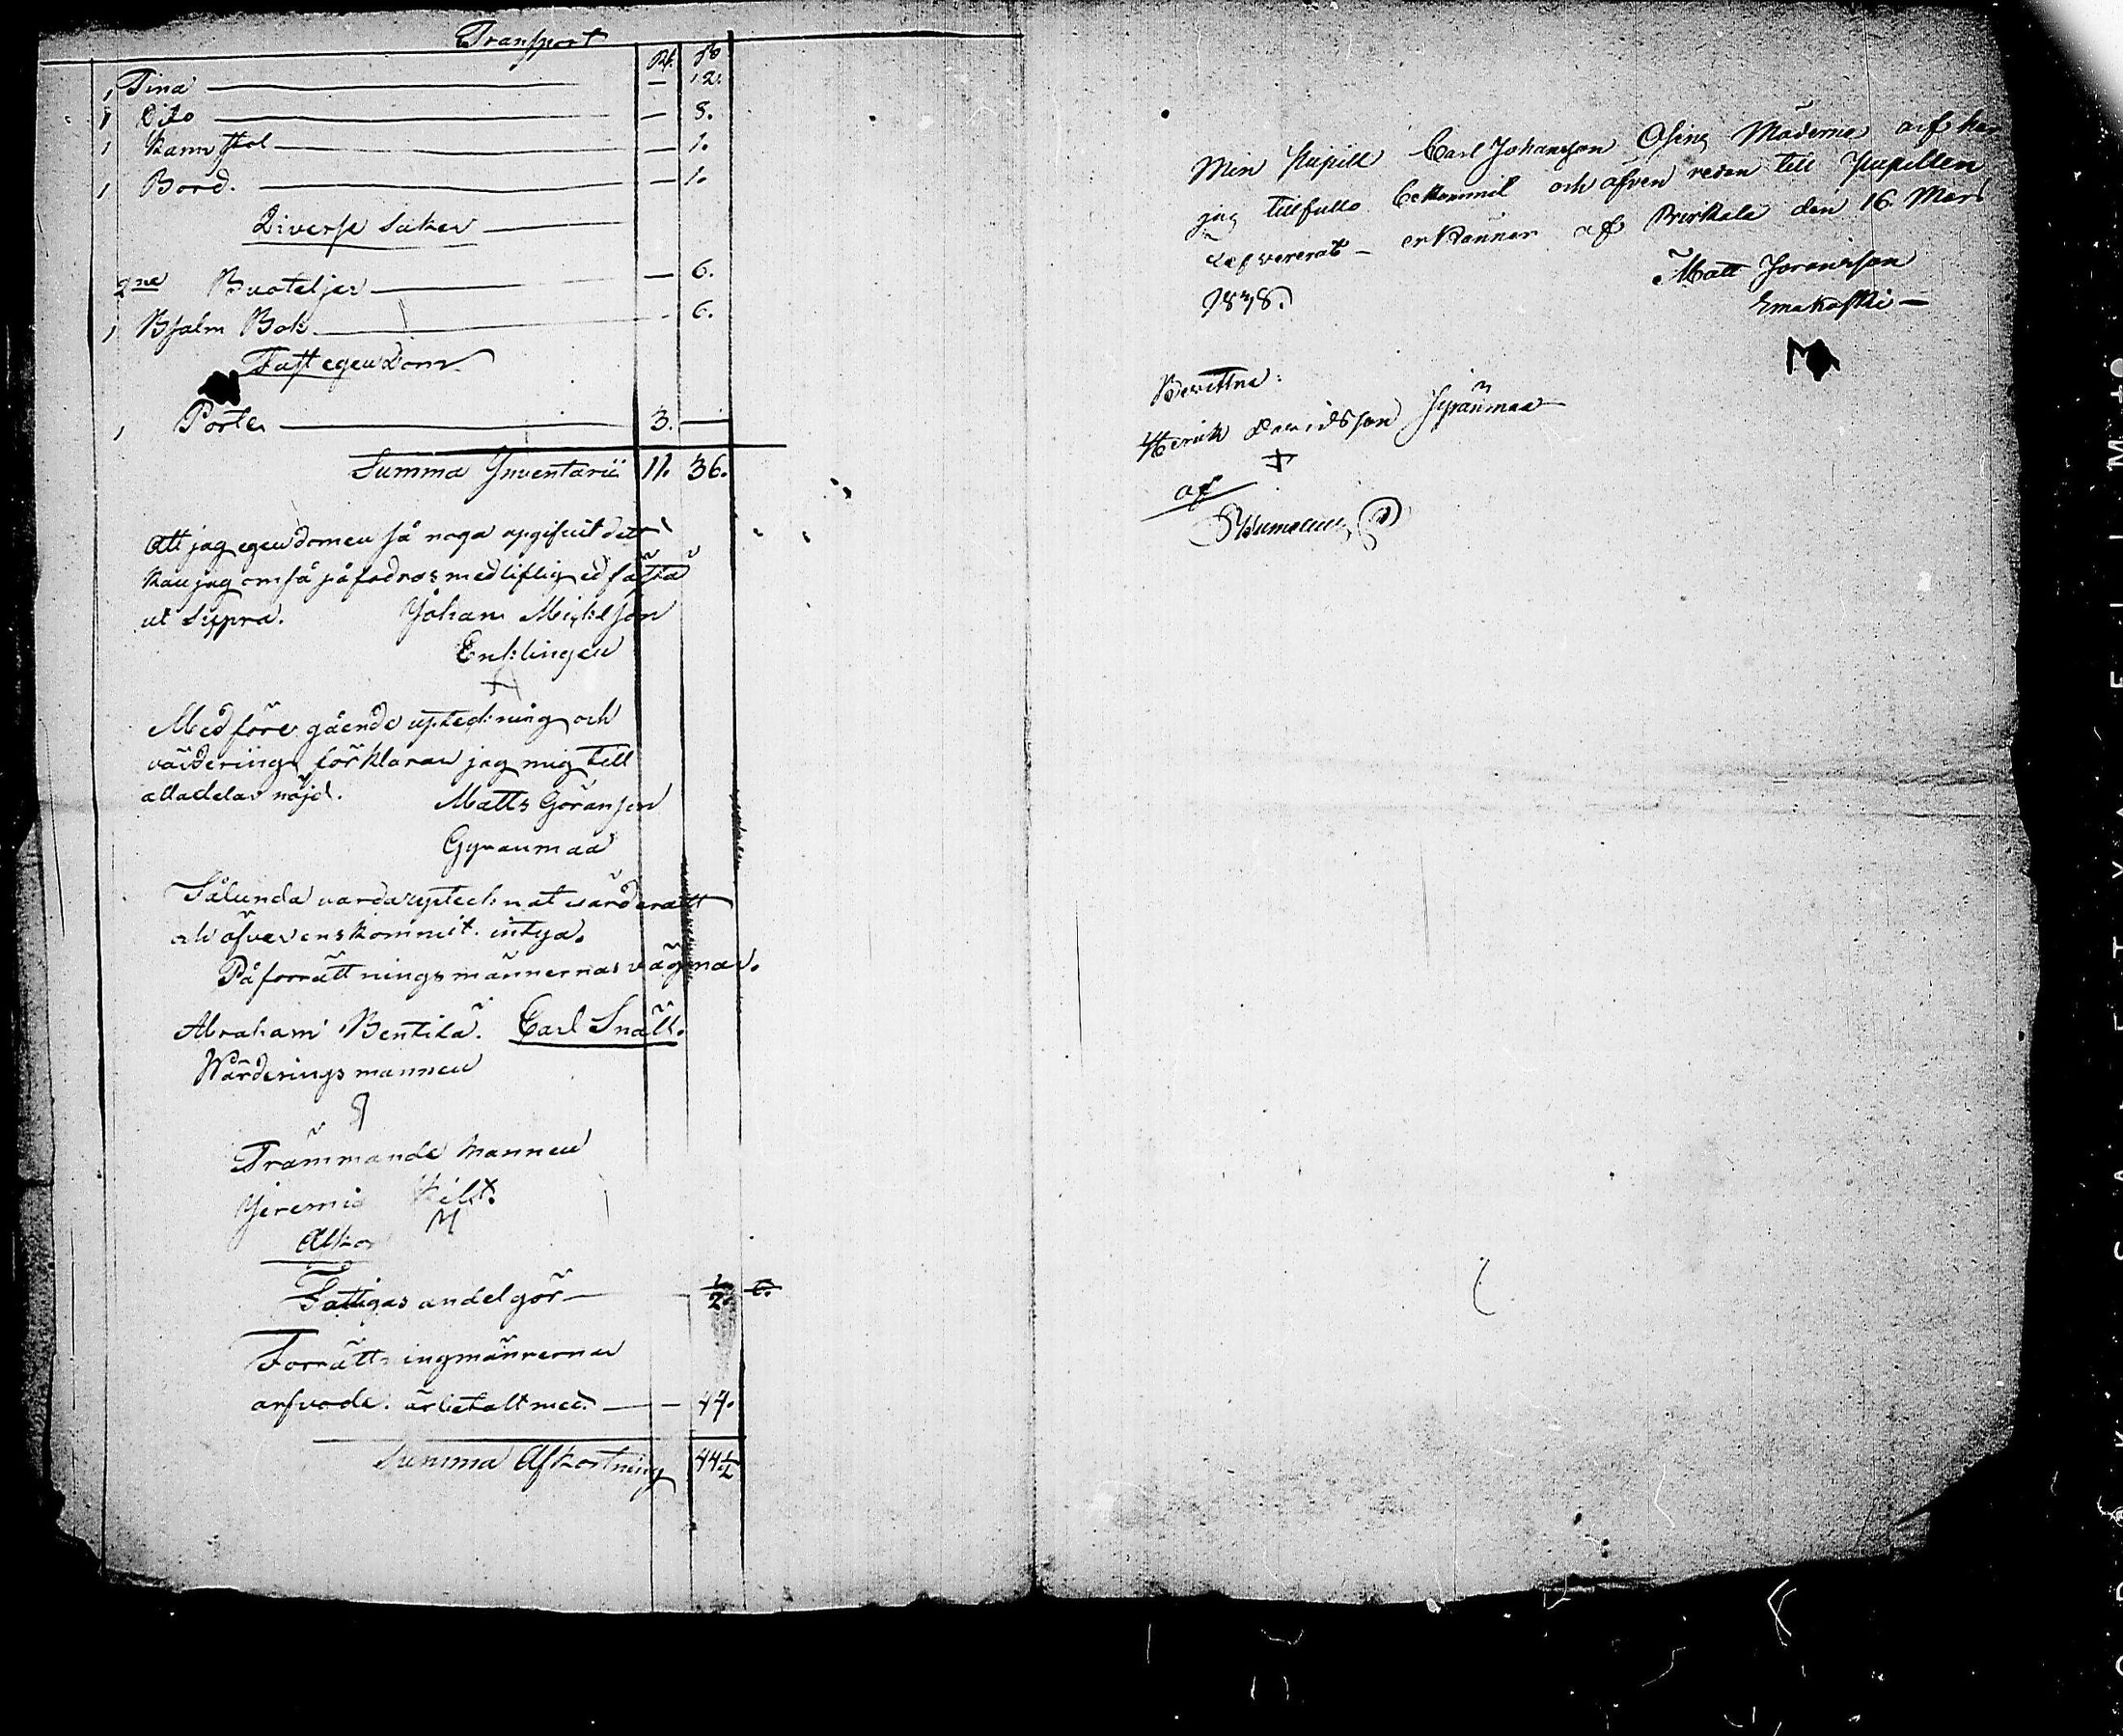 Transport
Rb. Sö
1 Tina — 12.
1 Dito — 8.
1 Kamstol — 1.
1 Bord. — 1.
Diverse Saker
2ne Buoteljer — 6.
1 Psalm Bok 6.
Fast egendom
1 Porte 3. —
Summa Inventarii 11. 36.
Att jag egendomen så noga opgifvit det
kan jag om så påfodras med liflig ed fästa
ut Supra. Johan Mickelson
Enklingen
Med före gående upteckning och
värdering förklarar jag mig till
alladelar nöjd. Matts Göranson
Gyraumaa
Sålunda varda uptecknat värderatt
och öfverenskommit intyga.
På forrättningsmännernas vägnar.
Abraham Bentilä. Carl Snäll.
Wärderings mannen
Främmande Mannen
Jeremia
Fattigas andel gör 1/2.
Forrättningmännernas
arfvode. är betalt med — 44.
Summa Afkortning 44 1/2
Min Pupill Carl Johansson Møderne arf har
jag tillfullo bekommit och äfven redan till Pupillen
lefvererat — erkänner af Pirkala den 16 Mars
1838. Matt Joranson
Emakoski —
Bevittna:
Henrik Davidsson Jyräumaa
af